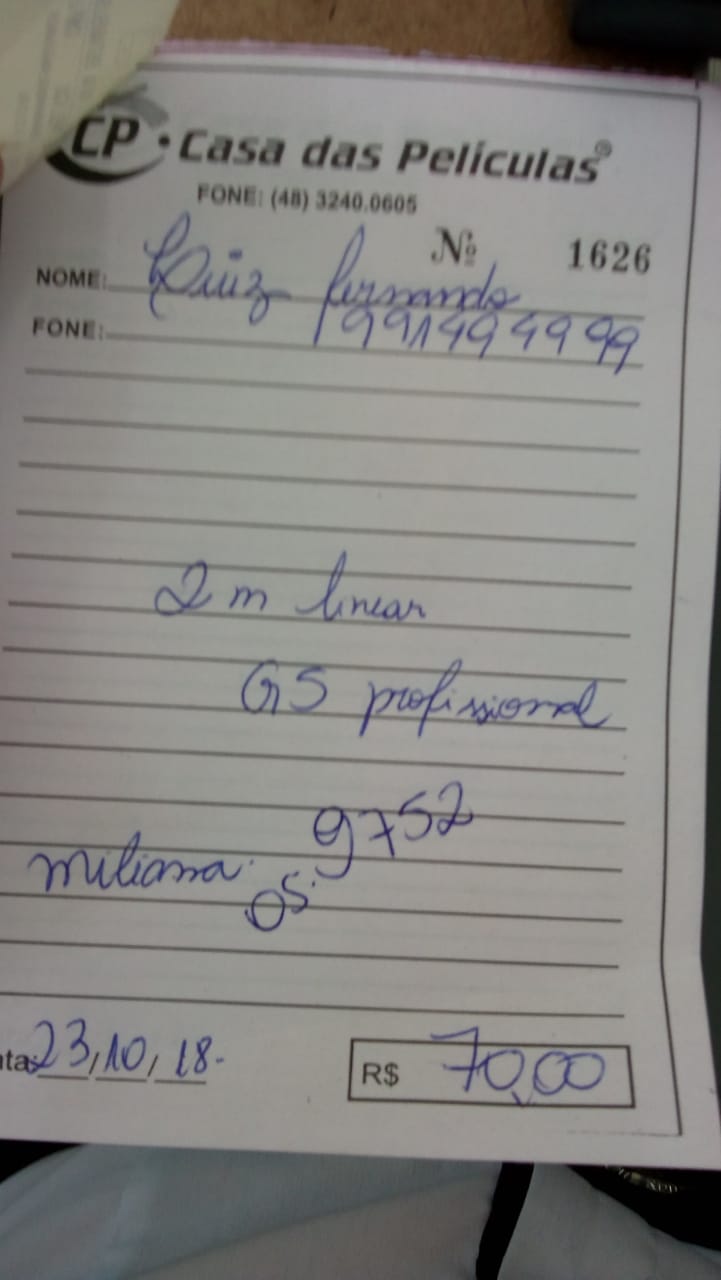 CP • Casa das Películas®
FONE: (48) 3240.0605
Nº 1626
NOME: Luiz Fernando
FONE: 991499499
2 m linear
G5 profissional
miliana. OS. 9752
Data: 23/10/18.
R$ 70,00